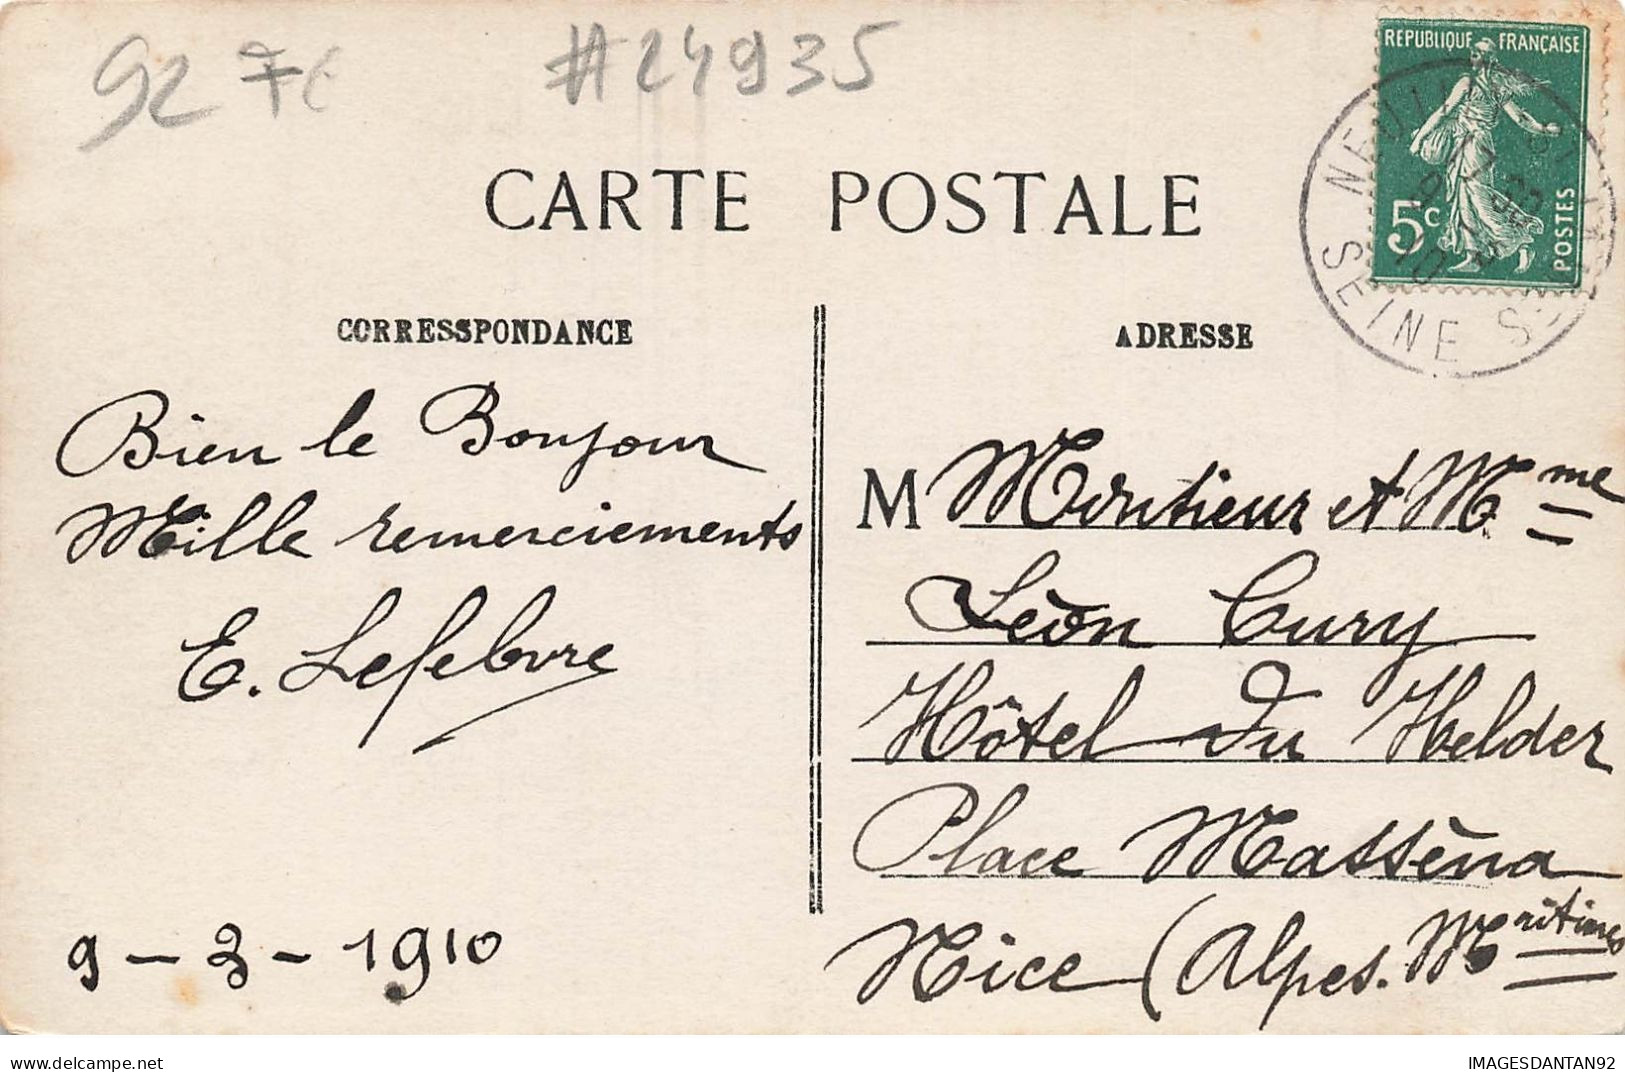 92 7E
#24935
REPUBLIQUE FRANÇAISE
5c
POSTES
SEINE
CARTE POSTALE
CORRESSPONDANCE
ADRESSE
Bien le Bonjour
Mille remerciements
E. Lefebvre
9-3-1910
M Montieur et Mme
Lèon Cury
Hôtel du Helder
Place Massèna
Nice (Alpes. Mritimes
delcampe.net
IMAGESDANTAN92